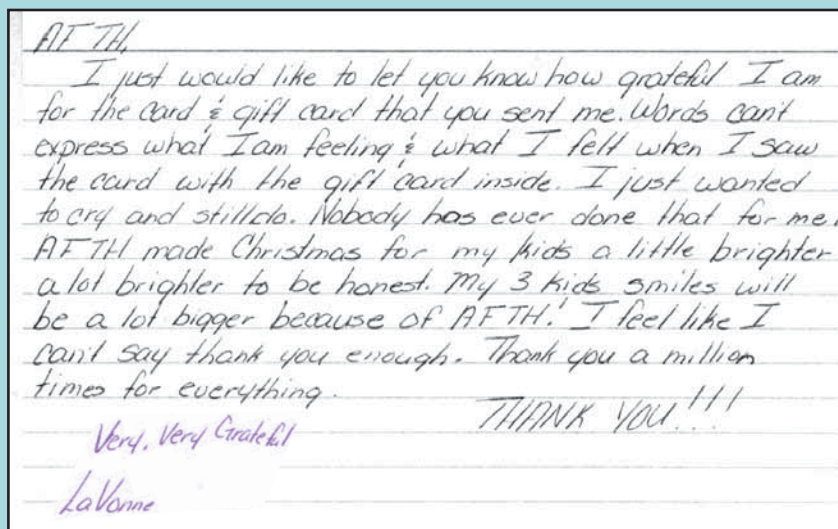 AFTH,
I just would like to let you know how grateful I am
for the card & gift card that you sent me. Words can't
express what I am feeling & what I felt when I saw
the card with the gift card inside. I just wanted
to cry and still do. Nobody has ever done that for me.
AFTH made Christmas for my kids a little brighter
a lot brighter to be honest. My 3 kids smiles will
be a lot bigger because of AFTH! I feel like I
can't say thank you enough. Thank you a million
times for everything.
THANK YOU!!!
Very, Very Grateful
LaVonne